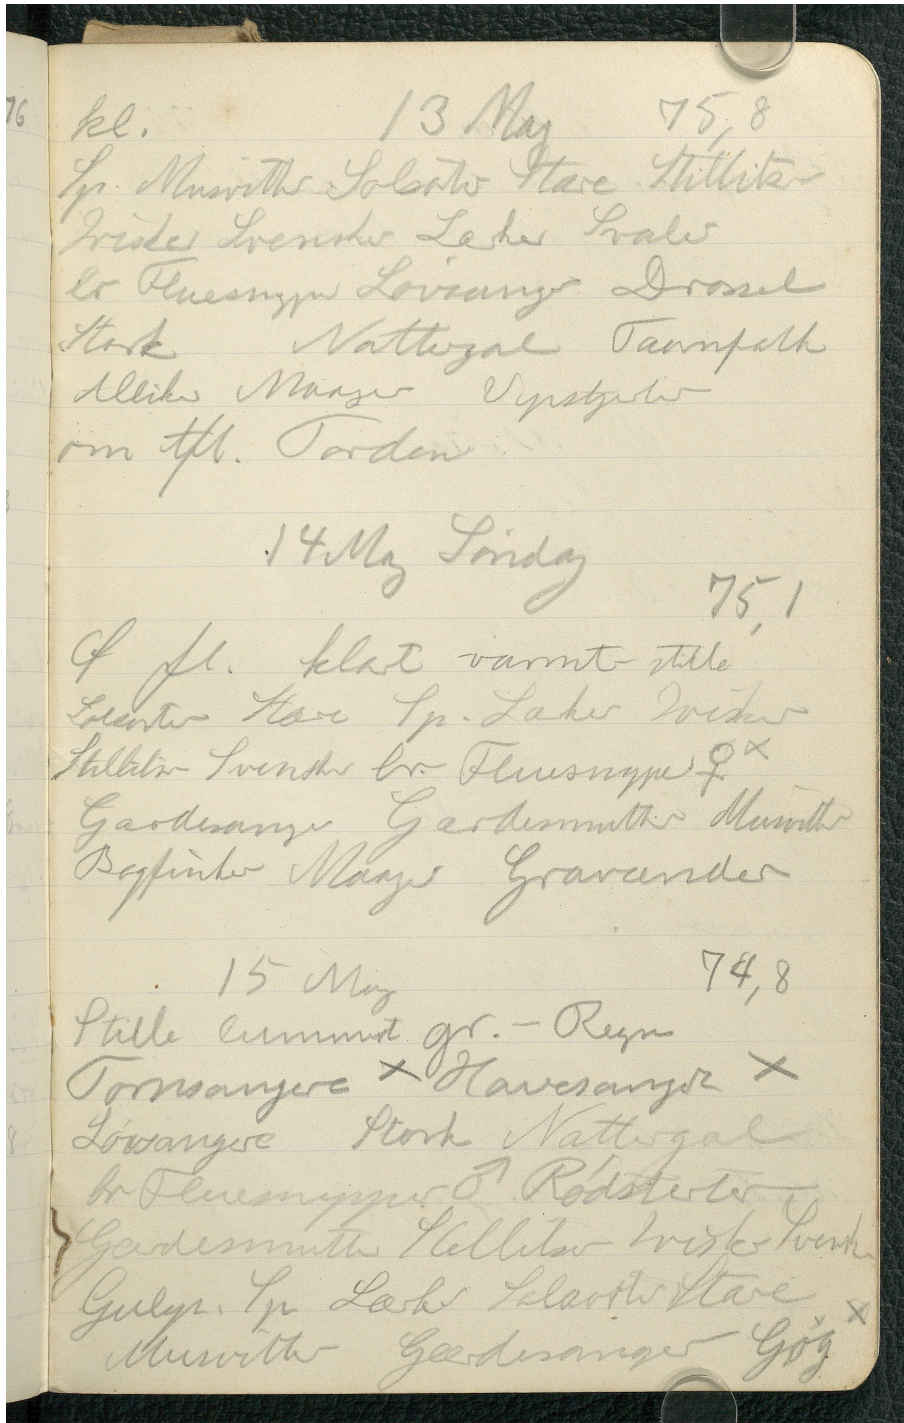 76
kl. 13 May 75,8
Sp. Musvitter Solsorter Stare Stillitser
Irisker Svensker Lærker Svaler
br Fluesnpper Løvsanger Drossel
Stork Nattergal Taarnfalk
Alliker Maager Vipstjerter
om ftl. Torden
14 May Søndag
75,1
Ø fl. klart varmt stille
Solsorter Stare Sp. Lærker Irisker
Stillitser Svensker br. Fluesnpper ♀ x
Gærdesanger Gærdesmutter Musvitter
Bogfinker Maager Gravænder
15 May 74,8
Stille lummert gr. - Regn
Tornsangere x Havesangere x
Løvsangere Stork Nattergal
br Fluesnapper ♂ Rødsterter
Gærdesmutter Stillitser Irisker Svensker
Gulsp. Sp Lærker Solsorter Stare
Musvitter Gærdesanger Gøg x